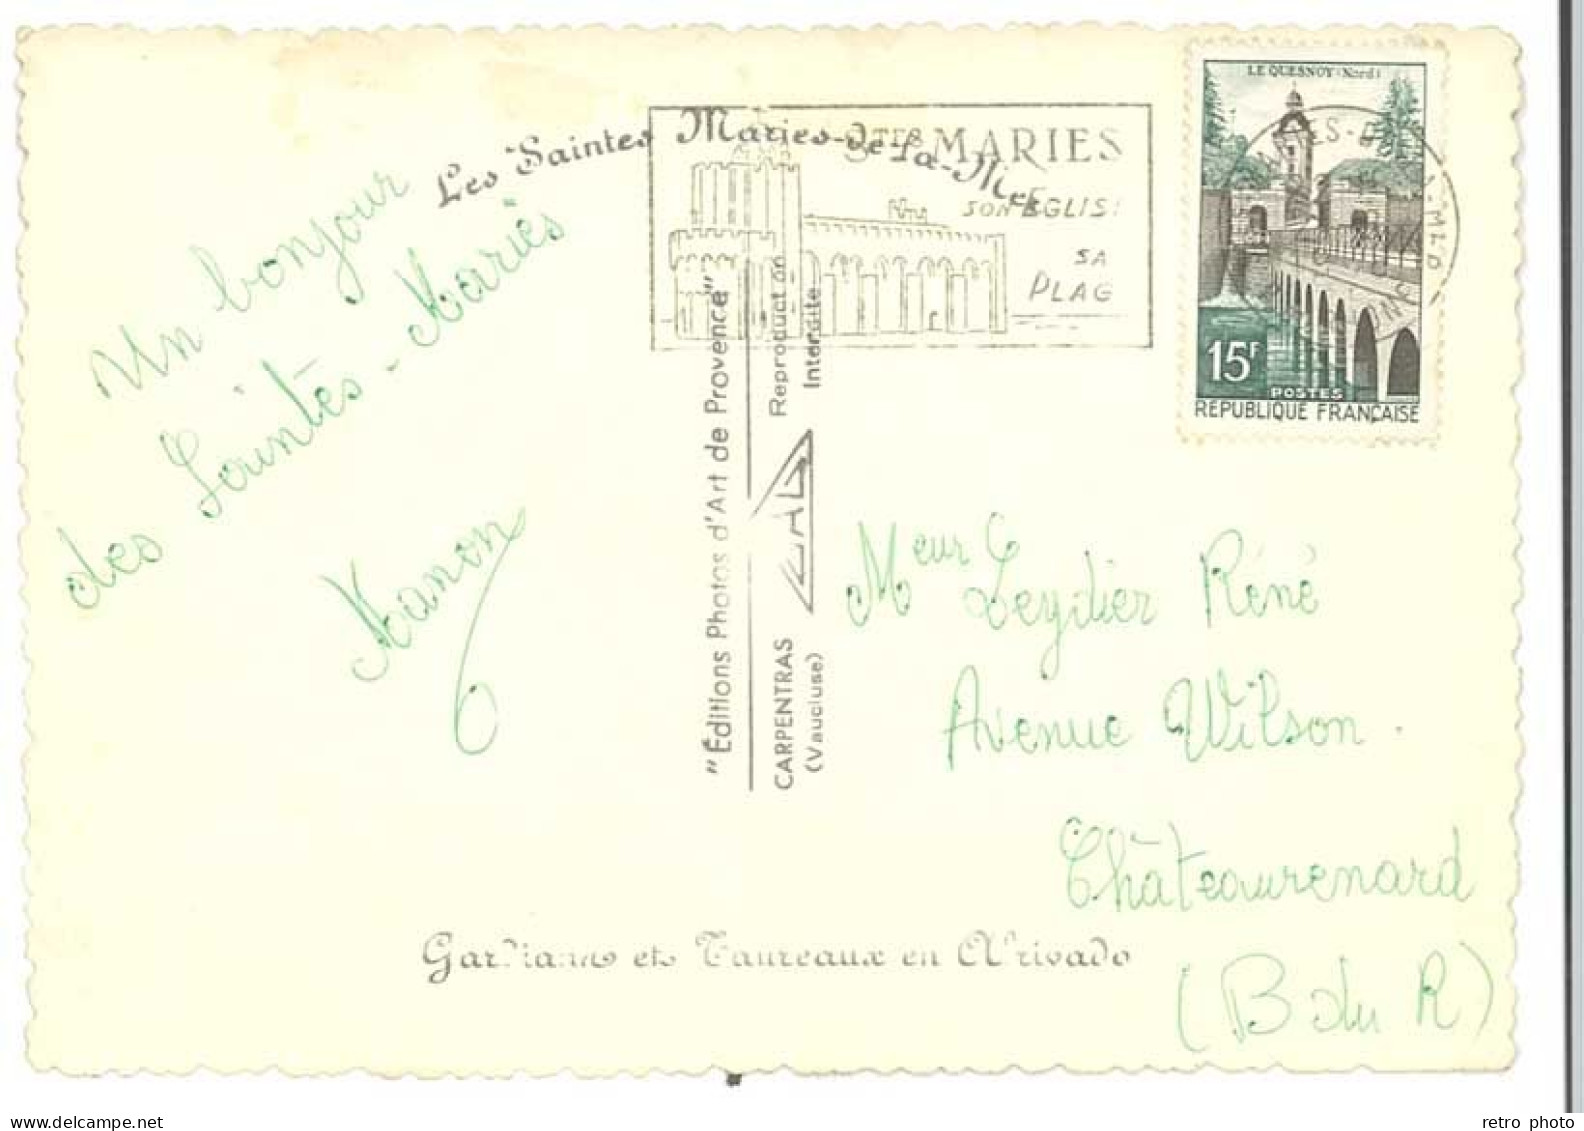 Les Saintes Maries-de-la-Mer
STES MARIES
SON EGLIS
SA
PLAG
LE QUESNOY (Nord)
15F
POSTES
RÉPUBLIQUE FRANÇAISE
Un bonjour
des Saintes-Maries
Manon
"Éditions Photos d'Art de Provence"
CARPENTRAS
(Vaucluse)
Reproduction
Interdite
Meur Leydier René
Avenue Wilson.
Châteaurenard
(B du R)
Gardians et Taureaux en Abrivado
delcampe.net
retro photo